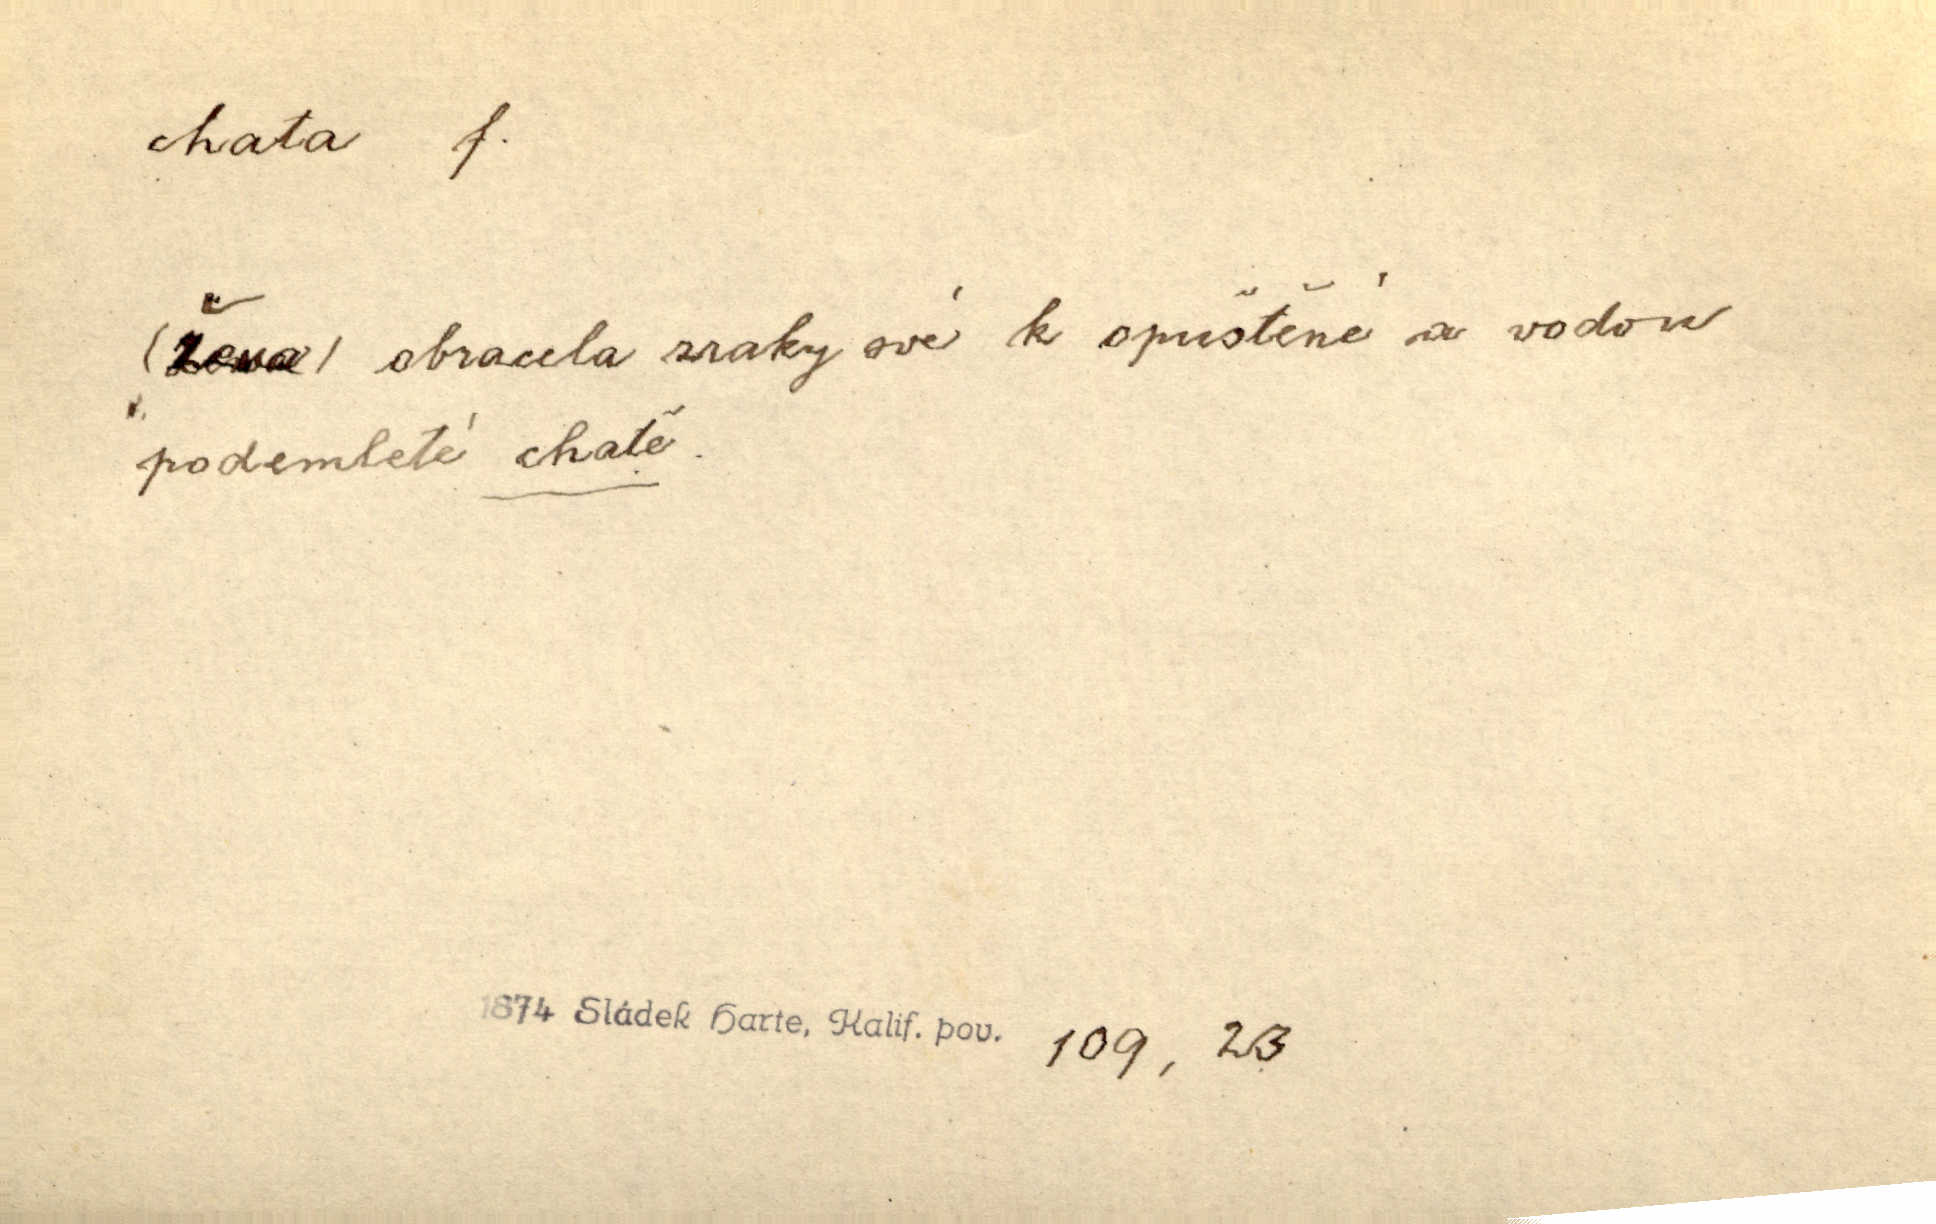 chata f.
(Žena) obracela zraky své k opuštěné a vodou
podemleté chatě.
1874 Sládek Harte, Kalif. pov. 109, 23